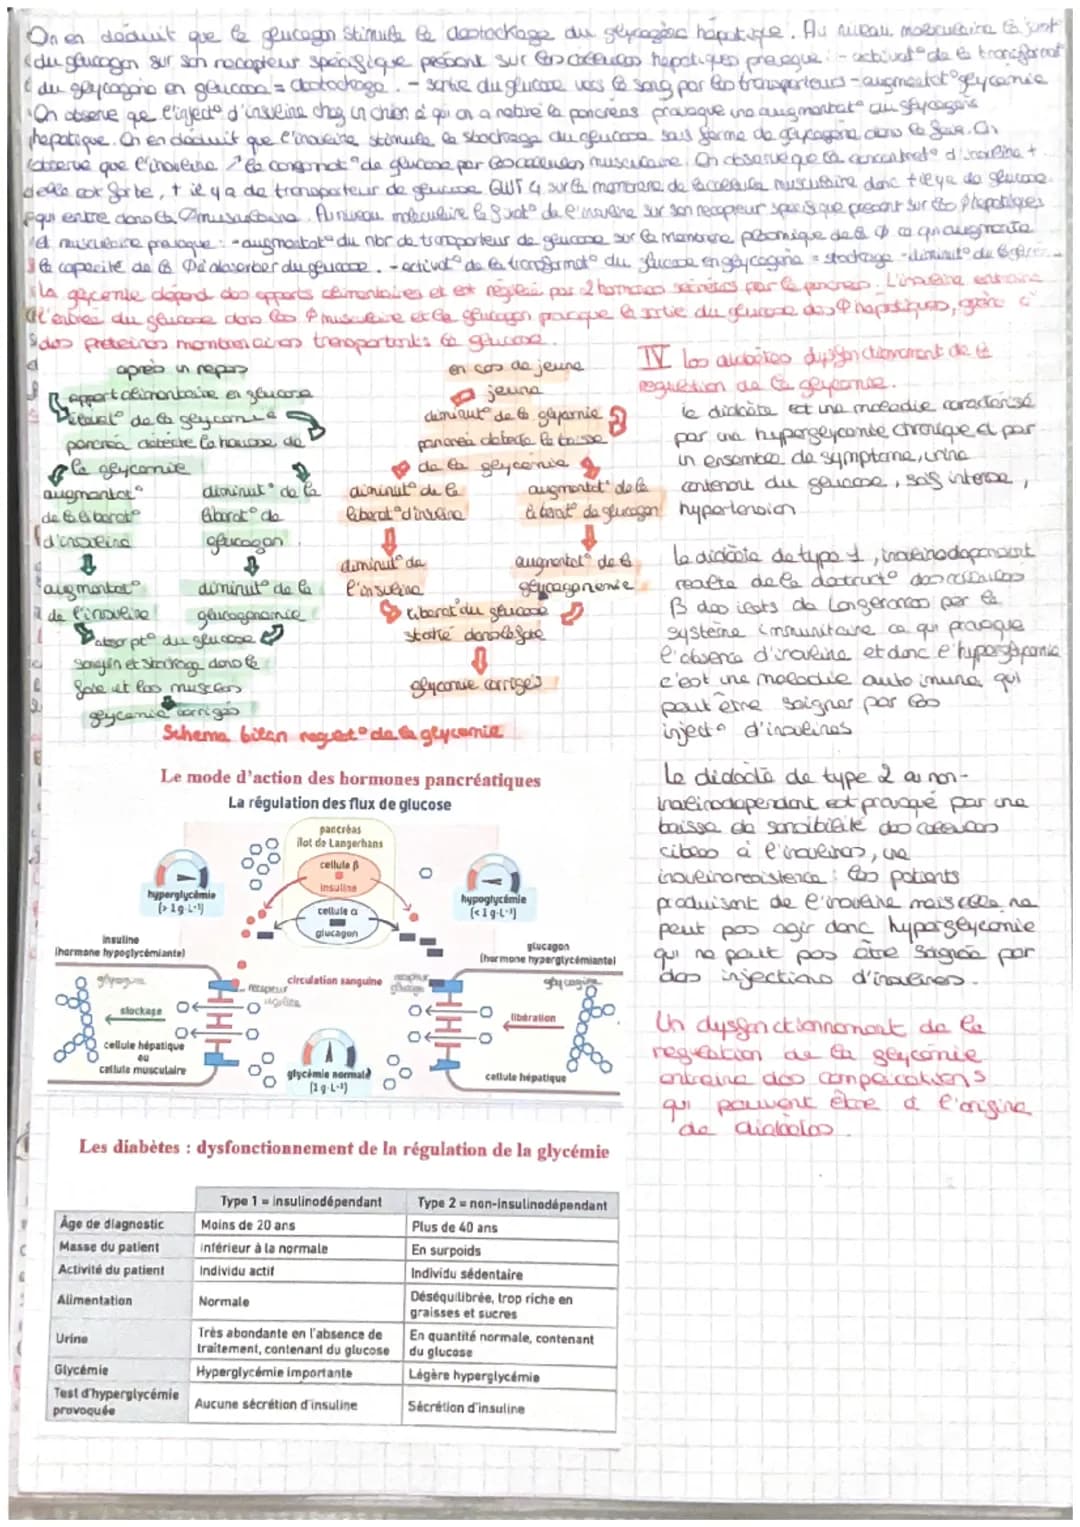 On en déduit que le glucagon stimule le destockage du glycogène hépatique. Au niveau moléculaire la
du glucagon sur son recepteur spécifique présent sur les cellules hepatiques provoque : - activat° de la transformat°
du glycogène en glucose = destockage. - sortie du glucose vers le sang par les transporteurs - augmentat° glycemie
On observe que l'inject° d'insuline chez un chien à qui on a retiré le pancréas provoque une augmentat° du glycogène
hepatique. On en déduit que l'insuline stimule le stockage du glucose sous forme de glycogène dans le foie. On
observe que l'insuline ↗ la consommat° de glucose par les cellules musculaire. On observe que la concentrat° d'insuline +
elle est forte, + il y a de transporteur de glucose GLUT 4 sur la membrane de la cellule musculaire donc + il y a de glucose
qui entre dans la musculaire. Au niveau moléculaire la fixat° de l'insuline sur son recepteur spécifique present sur les hepatiques
et musculaire provoque : - augmentat° du nbr de transporteur de glucose sur la membrane plasmique de la ce qui augmente
la capacité de la d'absorber du glucose. - activat° de la transformat° du glucose en glycogène = stockage - diminut° de la
La glycémie dépend des apports alimentaires et est réglée par 2 hormones sécrétées par le pancréas. L'insuline entraine
l'entrée du glucose dans les musculaire et le glucagon provoque la sortie du glucose des hepatiques, grâce à
des protéines membranaires transportant le glucose.
après un repas
Apport alimentaire en glucose
de la glycémie
pancréa détecte la hausse de
la glycemie
augmentat°
de la liberat°
d'insuline
diminut° de la
liberat° de
glucagon
augmentat°
de l'insuline
diminut° de la
glucagonemie
absorpt° du glucose
sanguin et stockage dans le
foie et les muscles
glycemie corrigés
en cas de jeune
jeune
diminut° de la glycémie
pancréa détecte la baisse
de la glycémie
diminut° de la
liberat° d'insuline
augmentat° de la
liberat° de glucagon
diminut° de
l'insuline
augmentat° de la
glucagonemie
liberat° du glucose
stocké dans le foie
glycemie corrigés
Schema bilan regulat° de la glycemie
IV les diabètes dysfonctionnement de la
régulation de la glycemie.
le diabète est une maladie caractérisé
par une hyperglycemie chronique et par
un ensemble de symptome, urine
contenant du glucose, soif intense,
hypertension
Le diabète de type 1, insulinodépendant
resulte de la destruct° des cellules
β des ilots de Langerhans par le
système immunitaire ce qui provoque
l'absence d'insuline et donc l'hyperglycemie
c'est une maladie auto imune qui
peut être soigner par les
inject° d'insulines
Le diabète de type 2 ou non-
insulinodependant est provoqué par une
baisse de sensibilité des cellules
cibles à l'insulines, une
insulinoresistence : les patients
produisent de l'insuline mais elle ne
peut pas agir donc hyperglycemie
qui ne peut pas être soignée par
des injections d'insulines.
Un dysfonctionnement de la
regulation de la glycémie
entraine des complications
qui peuvent être à l'origine
de diabetes.
Le mode d'action des hormones pancréatiques
La régulation des flux de glucose
pancréas
îlot de Langerhans
cellule β
insuline
cellule α
glucagon
hyperglycémie
(> 1 g·L⁻¹)
hypoglycémie
(< 1 g·L⁻¹)
insuline
(hormone hypoglycémiante)
glucagon
(hormone hyperglycémiante)
glycogène
stockage
cellule hépatique
ou
cellule musculaire
circulation sanguine
recepteur
insuline
recepteur
glucagon
glycogène
libération
cellule hépatique
glycémie normale
(1 g·L⁻¹)
Les diabètes : dysfonctionnement de la régulation de la glycémie
Type 1 = insulinodépendant
Type 2 = non-insulinodépendant
Âge de diagnostic
Moins de 20 ans
Plus de 40 ans
Masse du patient
Inférieur à la normale
En surpoids
Activité du patient
Individu actif
Individu sédentaire
Alimentation
Normale
Déséquilibrée, trop riche en
graisses et sucres
Urine
Très abondante en l'absence de
traitement, contenant du glucose
En quantité normale, contenant
du glucose
Glycémie
Hyperglycémie importante
Légère hyperglycémie
Test d'hyperglycémie
provoquée
Aucune sécrétion d'insuline
Sécrétion d'insuline